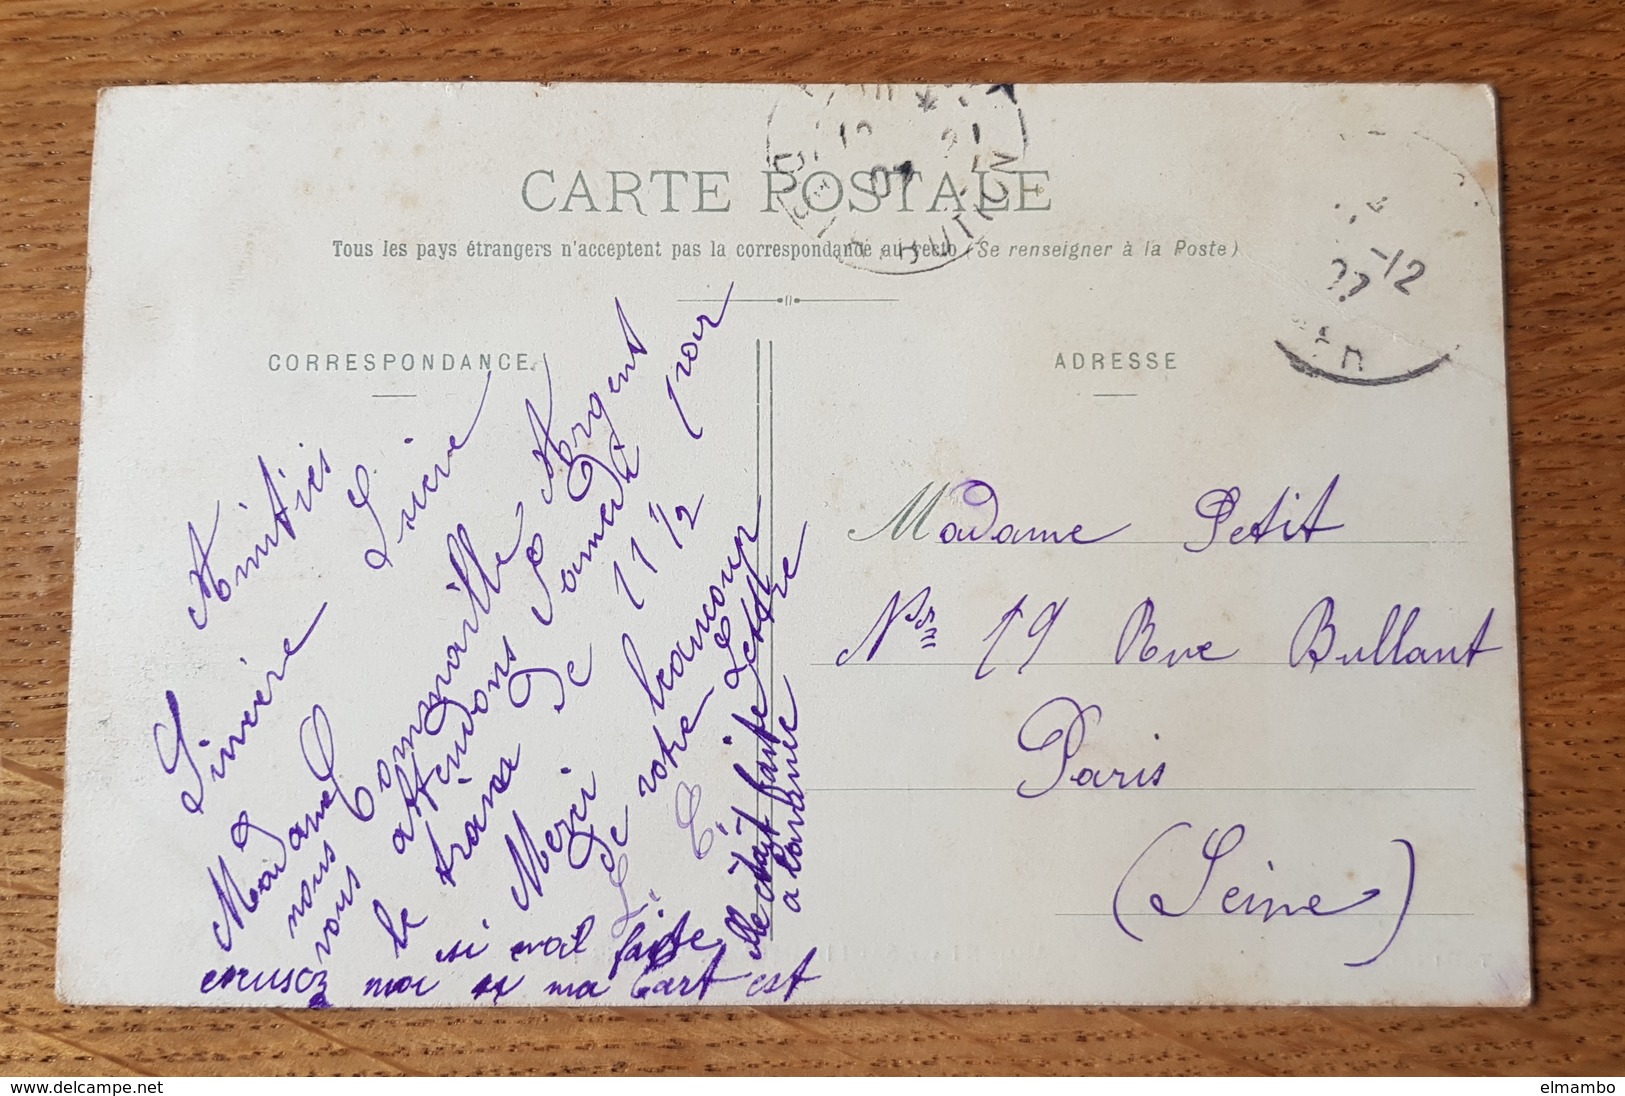 CARTE POSTALE
Tous les pays étrangers n'acceptent pas la correspondance au recto (Se renseigner à la Poste)
CORRESPONDANCE
ADRESSE
Amitiés
Sincère
Sincère
Madame
nous
vous attendons Samedi pour
le train de 11 1/2
Merci beaucoup
de votre Lettre
elle était faite
excusez moi si ma Cart est
si mal faite
Madame Petit
Nr 19 Rue Bullant
Paris
(Seine)
07
22 -12
delcampe.net
elmambo